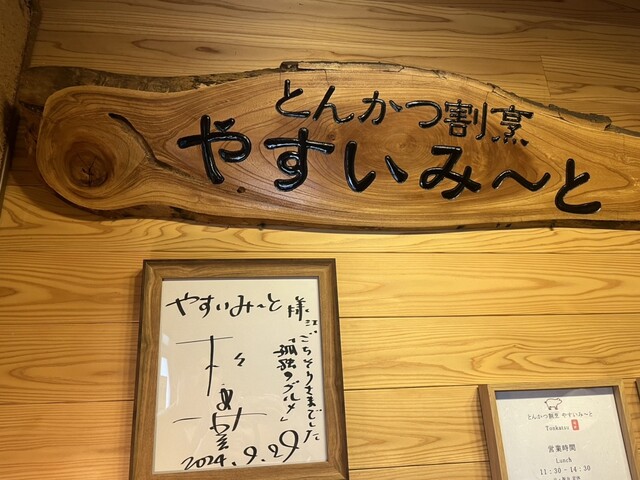 とんかつ割烹
やすいみ〜と
やすいみ〜と様
ごちそうさまでした
「孤独のグルメ」
2024.9.29
とんかつ割烹 やすいみ〜と
Tonkatsu
営業時間
Lunch
11:30 - 14:30